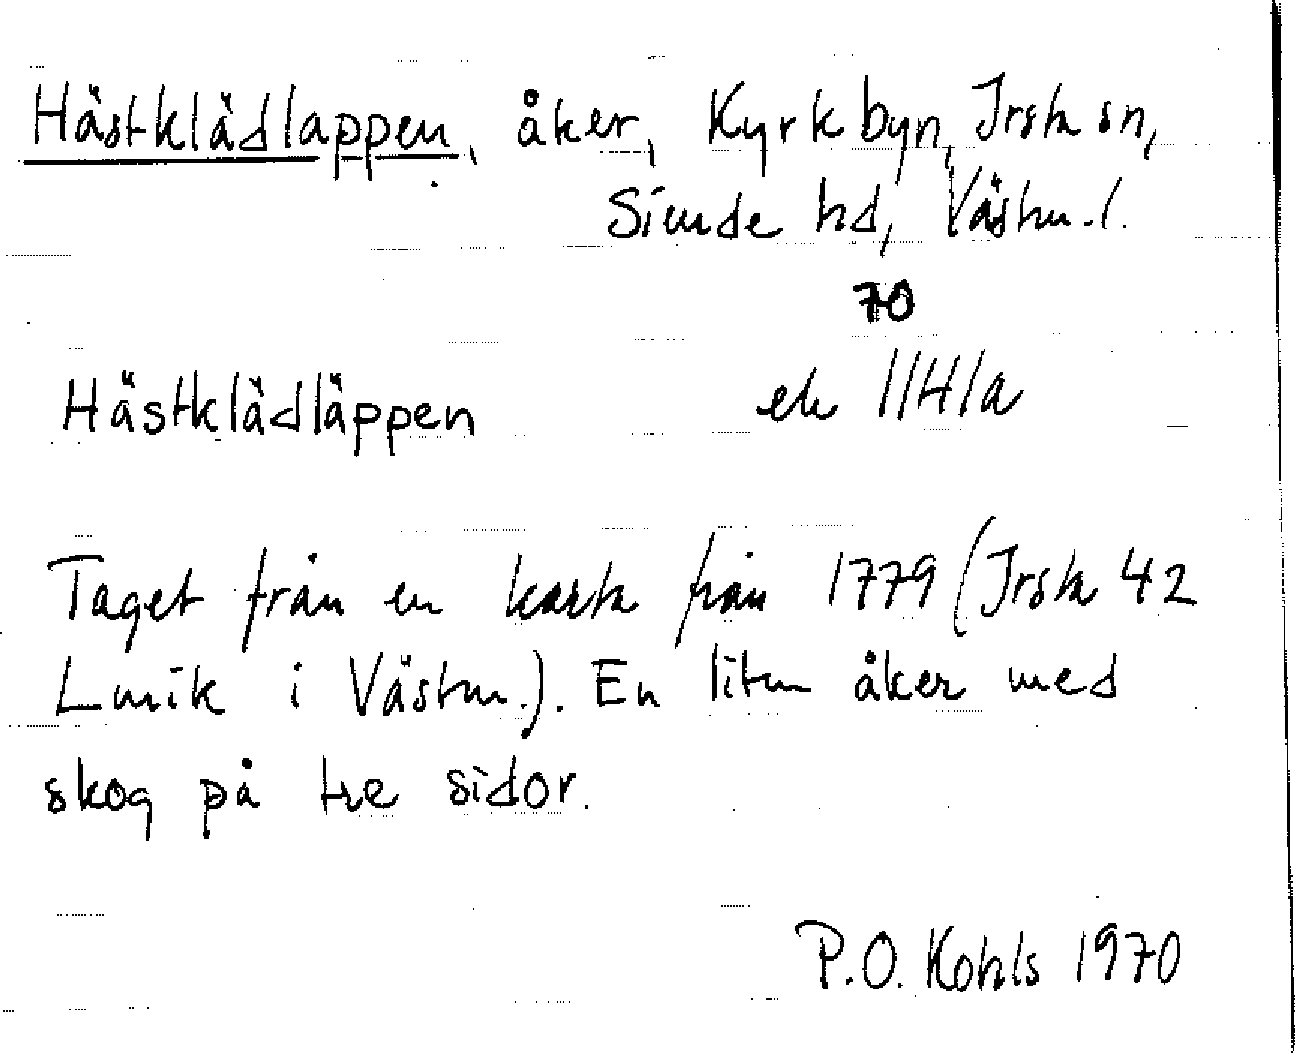 Hästklädlappen, åker, Kyrkbyn, Irsta sn,
Siende hd, Västm. l.
70
Hästklädläppen ek 11H1a
Taget från en karta från 1779 (Irsta 42
Lmik i Västm.). En liten åker med
skog på tre sidor.
P.O. Kohls 1970